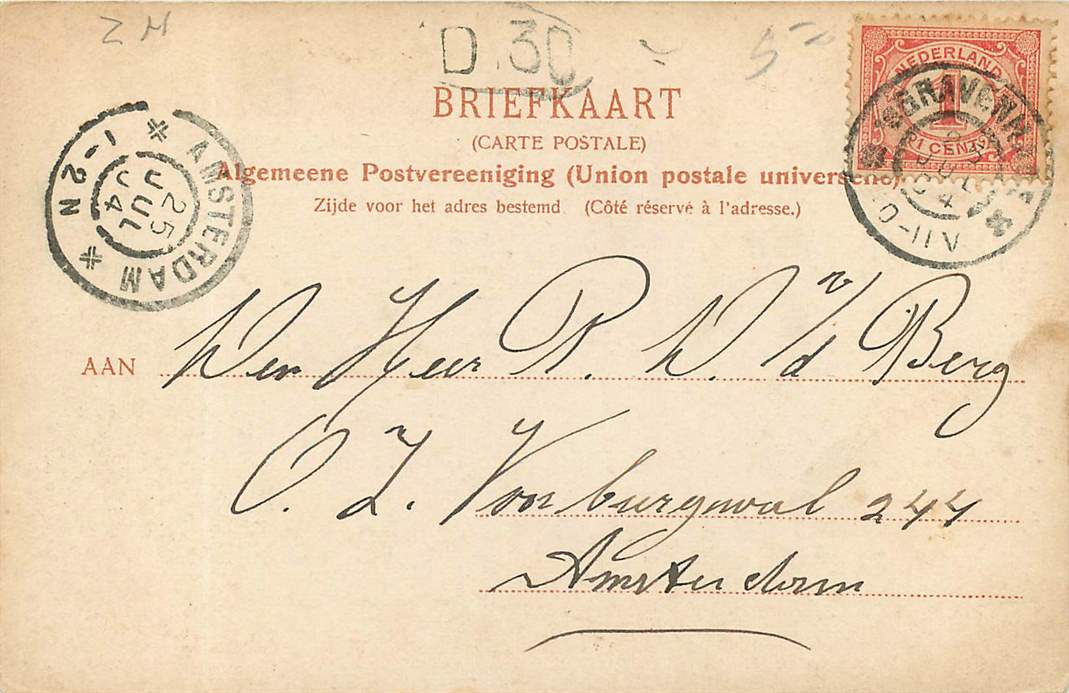 ZN
D.30
5
NEDERLAND
1
CENT
'S GRAVENHAGE
JUL
04
10-11V
BRIEFKAART
(CARTE POSTALE)
Algemeene Postvereeniging (Union postale universelle)
Zijde voor het adres bestemd (Côté réservé à l'adresse.)
AMSTERDAM
25
JUL
04
1-2N
AAN Den Heer P. W. v/d Berg
O. Z. Voorburgwal 244
Amsterdam